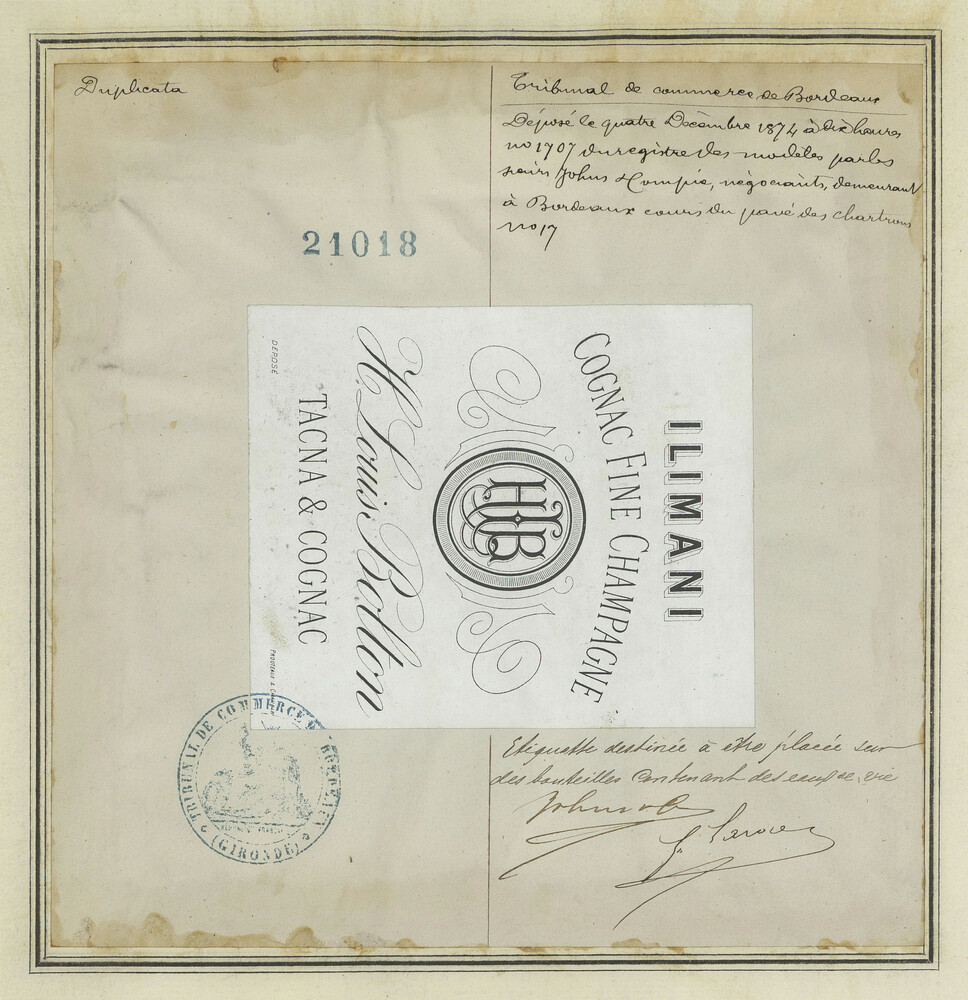 Duplicata
Tribunal de commerce de Bordeaux
Déposé le quatre Décembre 1874 à dix heures
no 1707 du registre des modèles par les
sieurs Johns & Compie, négociants, demeurant
à Bordeaux cours du pavé des chartrons
no 17
21018
ILIMANI
COGNAC FINE CHAMPAGNE
HLB
H. Louis Bolton
TACNA & COGNAC
DÉPOSÉ
TRIBUNAL DE COMMERCE
(GIRONDE)
Etiquette destinée à être placée sur
des bouteilles contenant des eaux de vie
Johns & C